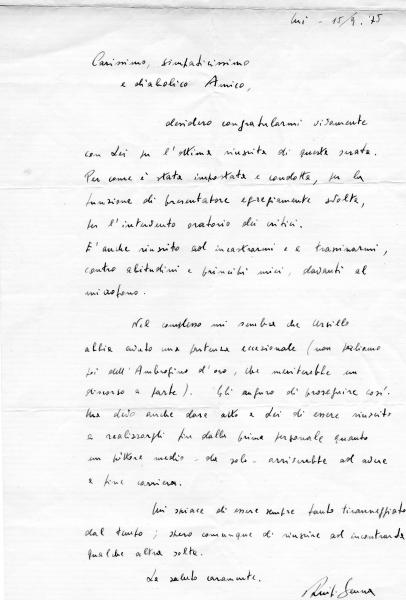 Mi - 15/9.'75
Carissimo, simpaticissimo
e diabolico Amico,
desidero congratularmi vivamente
con Lei per l'ottima riuscita di questa serata.
Per come è stata impostata e condotta, per la
funzione di presentatore egregiamente svolta,
per l'intervento oratorio dei critici.
E' anche riuscito ad incastrarmi e a trascinarmi,
contro abitudini e principi miei, davanti al
microfono.
Nel complesso mi sembra che
abbia avuto una partenza eccezionale (non parliamo
poi dell'Ambrogino d'oro, che meriterebbe un
discorso a parte). Gli auguro di proseguire così.
Ma devo anche dare atto a Lei di essere riuscito
a realizzargli fin dalla prima personale quanto
un pittore medio - da solo - arriverebbe ad avere
a fine carriera.
Mi spiace di essere sempre tanto tiranneggiato
dal tempo; spero comunque di riuscire ad incontrarla
qualche altra volta.
La saluto caramente.